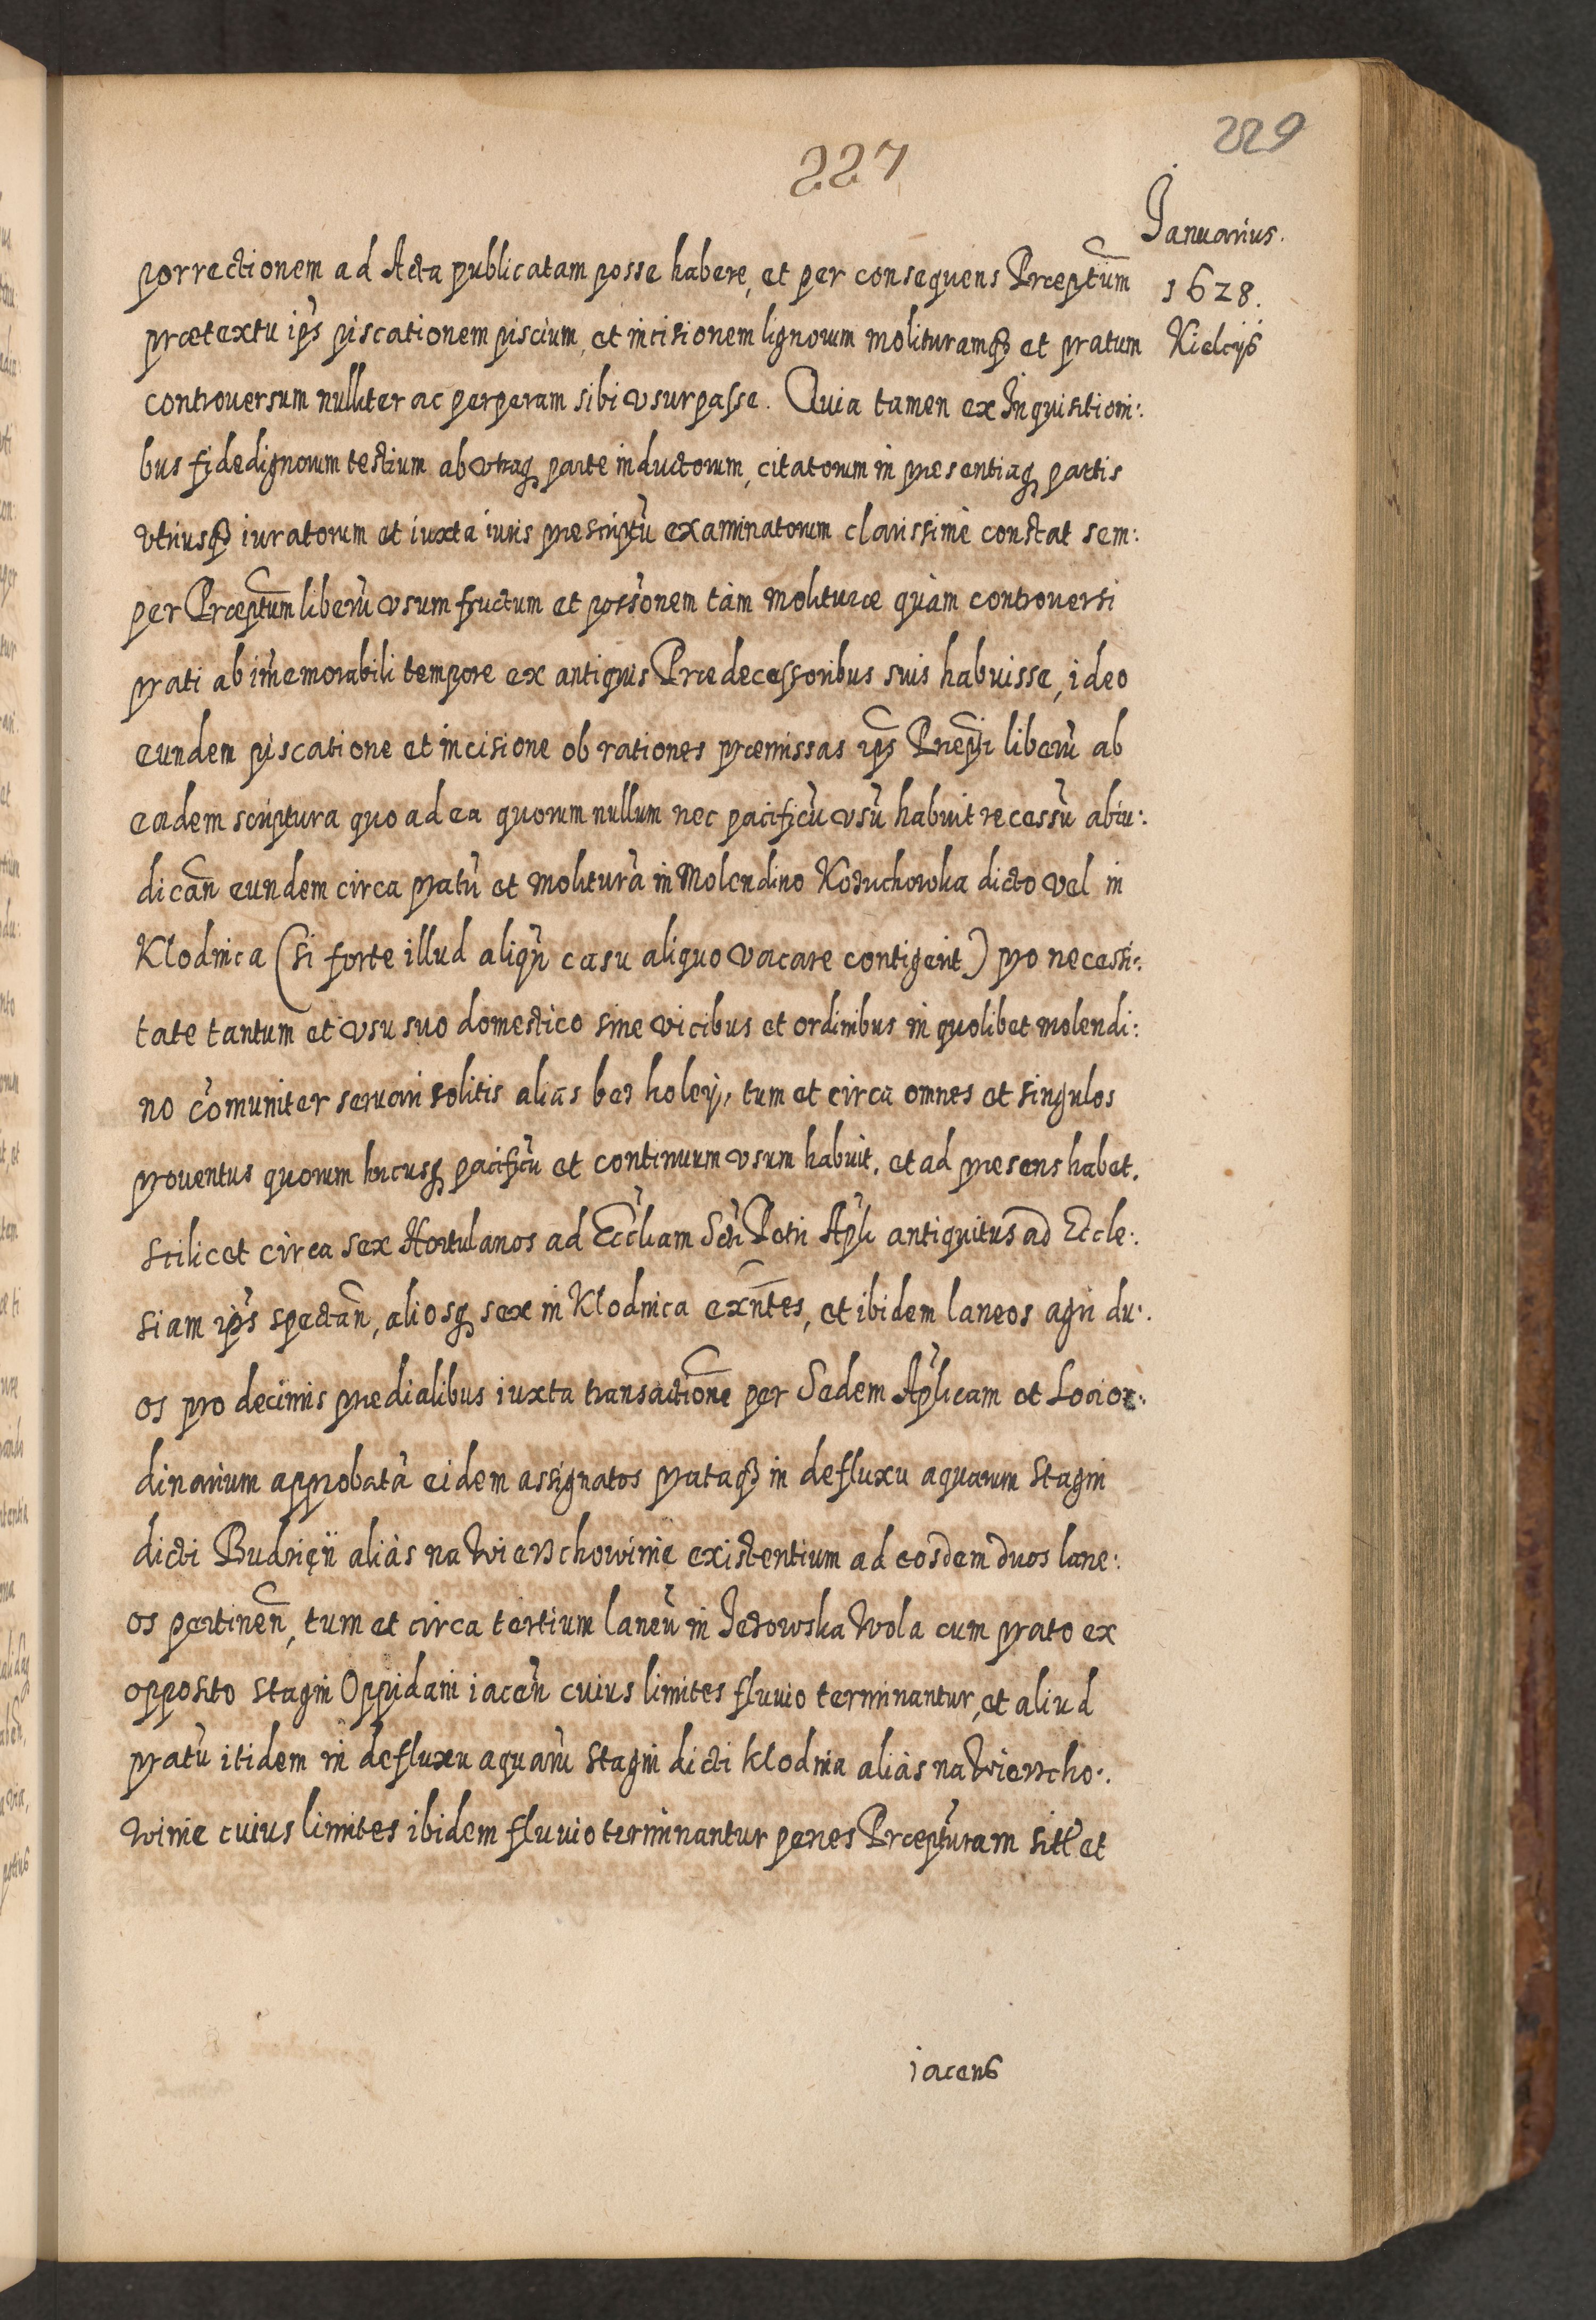 229
227
Januarius.
1628.
Kielcijs
porrectionem ad Acta publicatam posse habere, et per consequens Præptum
prætextu ips piscationem piscium, et incisionem lignorum molituramq3 et pratum
controuersum nulliter ac perperam sibi vsurpasse. Quia tamen ex Inquisitioni:
bus fidedignorum testium ab vtraq parte inductorum, citatorum in presentiaq partis
vtriusq3 iuratorum et iuxta iuris prescriptũ examinatorum clarissimè constat sem:
per Præptum liberũ vsum fructum et possonem tàm molituræ quàm controuersi
prati ab imemorabili tempore ex antiquis Prædecessoribus suis habuisse, ideo
eundem piscatione et incisione ob rationes præmissas ips Præpti liberũ ab
eadem scriptura quo ad ea quorum nullum nec pacificũ vsũ habuit recessũ abiu:
dican eundem circa pratũ et moliturã in Molendino Kozuchowka dicto vel in
Klodnica (si forte illud aliqñ casu aliquo vacare contigerit) pro necessi:
tate tantum et vsu suo domestico sine vicibus et ordinibus in quolibet molendi:
no comuniter seruari solitis aliàs bez koleÿ, tum et circa omnes et singulos
prouentus quorum hucusq pacificũ et continuum vsum habuit, et ad presens habet.
scilicet circa sex Hortulanos ad Eccliam Scti Petri Apli antiquitus ad Eccle:
siam ips spectan, aliosq sex in Klodnica exntes, et ibidem laneos agri du:
os pro decimis predialibus iuxta transactione per Sedem Aplicam et Loci or:
dinarium approbatã eidem assignatos prataq3 in defluxu aquarum stagni
dicti Budzięń aliàs na Wierzchowinie existentium ad eosdem duos lane:
os pertinen, tum et circa tertium laneũ in Jezowska Wola cum prato ex
opposito stagni Oppidani iacen cuius limites fluuio terminantur, et aliud
pratũ itidem in defluxu aquarũ stagni dicti Klodnia aliàs na Wierzcho:
winie cuius limites ibidem fluuio terminantur penes Præpturam sitt et
iacens